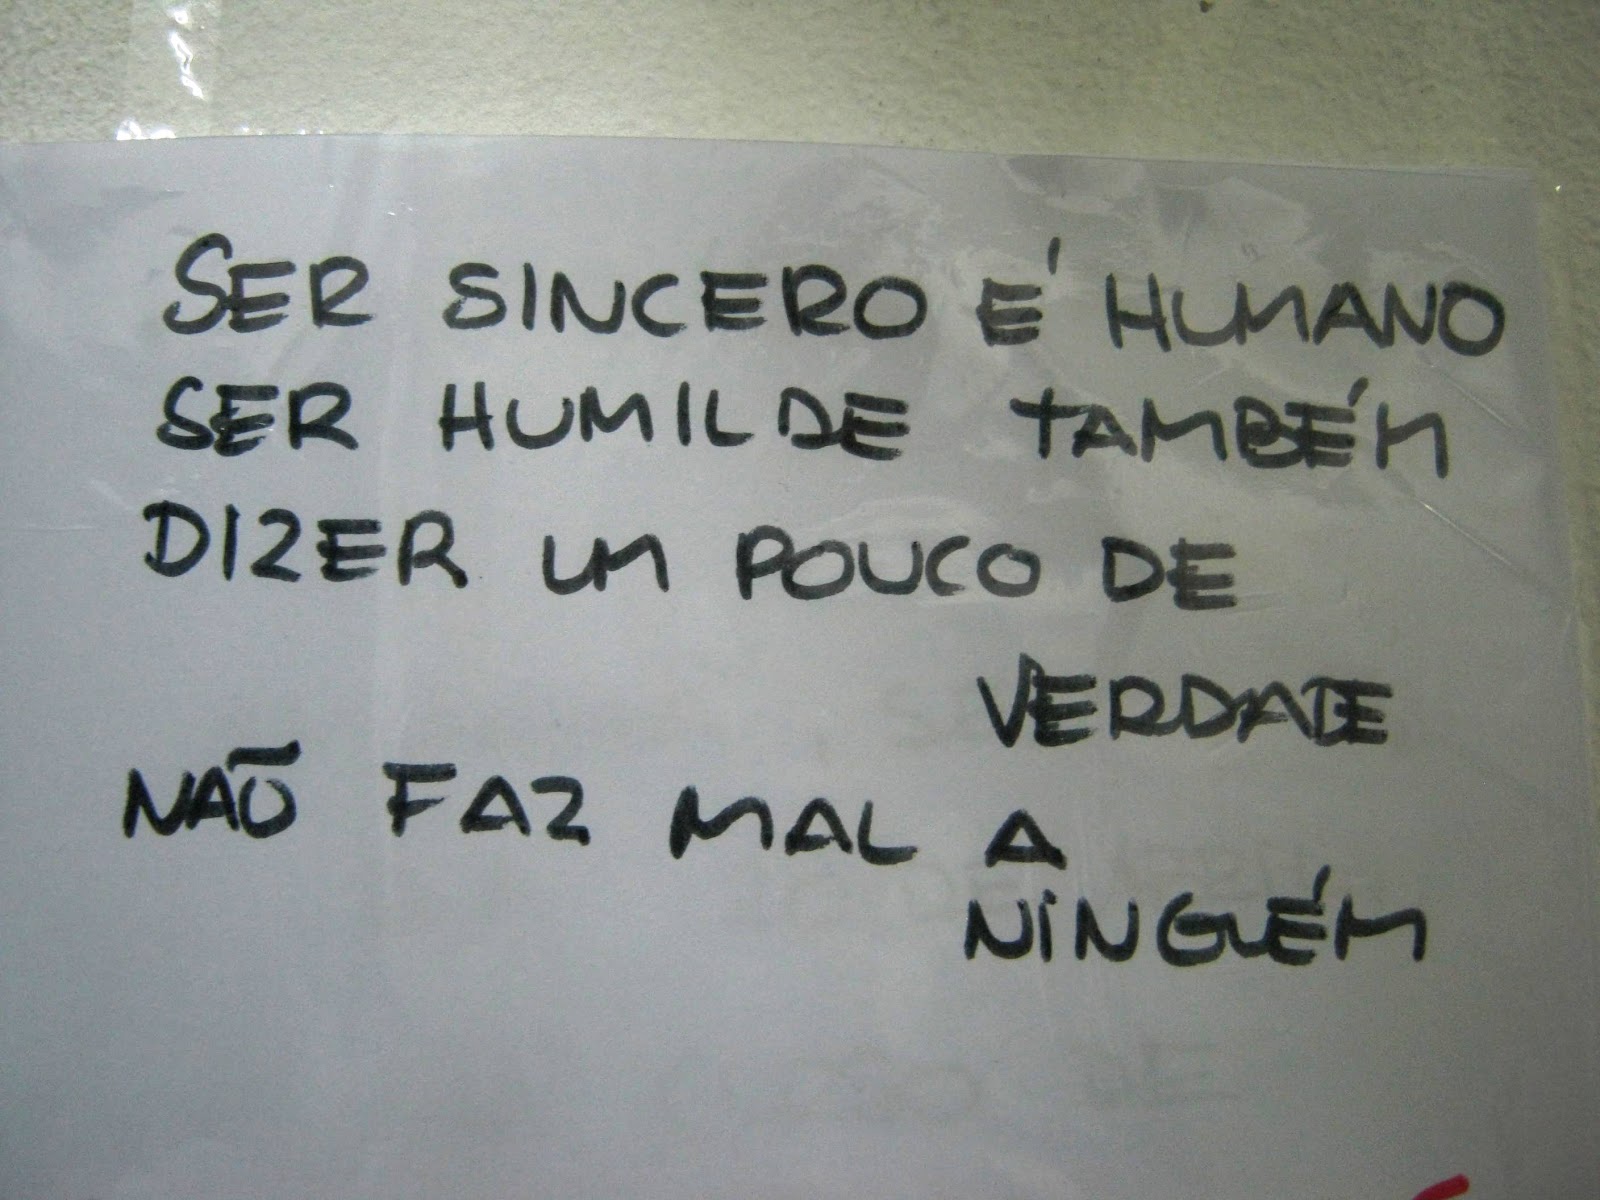 SER SINCERO É HUMANO
SER HUMILDE TAMBÉM
DIZER UM POUCO DE
VERDADE
NÃO FAZ MAL A
NINGUÉM